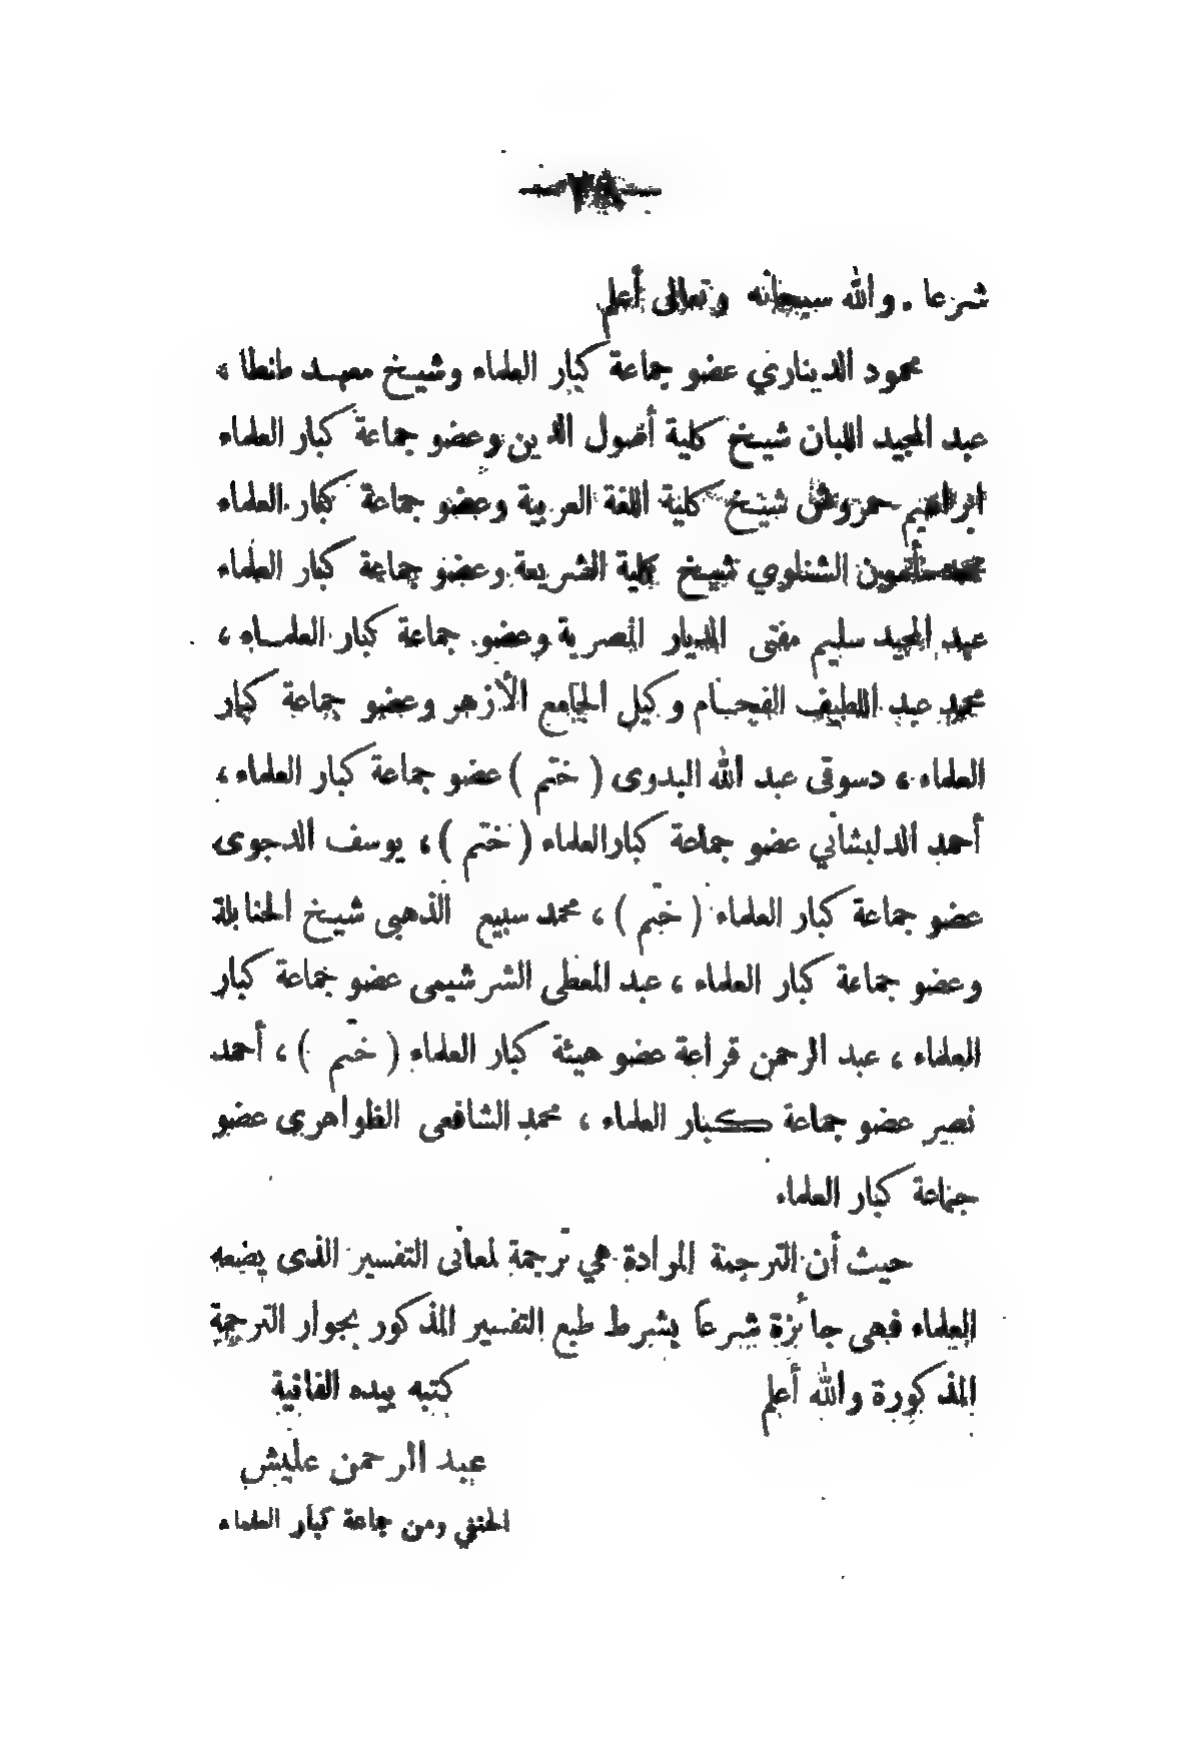 — ٢٨ —
شرعا . والله سبحانه وتعالى أعلم
محمود الديناري عضو جماعة كبار العلماء وشيخ معهد طنطا ،
عبد المجيد اللبان شيخ كلية أصول الدين وعضو جماعة كبار العلماء
ابراهيم حمروش شيخ كلية اللغة العربية وعضو جماعة كبار العلماء
محمد مأمون الشناوي شيخ كلية الشريعة وعضو جماعة كبار العلماء
عبد المجيد سليم مفتى الديار المصرية وعضو جماعة كبار العلماء ،
محمد عبد اللطيف الفحام وكيل الجامع الأزهر وعضو جماعة كبار
العلماء ، دسوقى عبد الله البدوى ( ختم ) عضو جماعة كبار العلماء ،
أحمد الدلبشاني عضو جماعة كبار العلماء ( ختم ) ، يوسف الدجوى
عضو جماعة كبار العلماء ( ختم ) ، محمد سبيع الذهبى شيخ الحنابلة
وعضو جماعة كبار العلماء ، عبد المعطى الشرشيمى عضو جماعة كبار
العلماء ، عبد الرحمن قراعة عضو هيئة كبار العلماء ( ختم ) ، أحمد
نصير عضو جماعة كبار العلماء ، محمد الشافعى الظواهرى عضو
جماعة كبار العلماء
حيث أن الترجمة المرادة هي ترجمة لمعانى التفسير الذى يضعه
العلماء فهى جائزة شرعا بشرط طبع التفسير المذكور بجوار الترجمة
المذكورة والله أعلم كتبه بيده الفانية
عبد الرحمن عليش
الحنفي ومن جماعة كبار العلماء